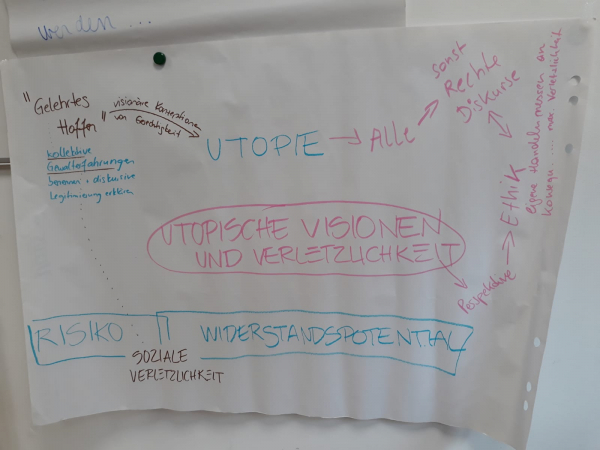 werden ...
"Gelehrtes
Hoffen"
visionäre Konzeptionen
von Gerechtigkeit
kollektive
Gewalterfahrungen
benennen + diskursive
Legitimierung erklären
UTOPIE
Alle
sonst
Rechte
Diskurse
Ethik
eigene Handeln messen an
Konsequ.... nur Verletzlichkeit
Perspektive
UTOPISCHE VISIONEN
UND VERLETZLICHKEIT
RISIKO:
WIDERSTANDSPOTENTIAL
SOZIALE
VERLETZLICHKEIT